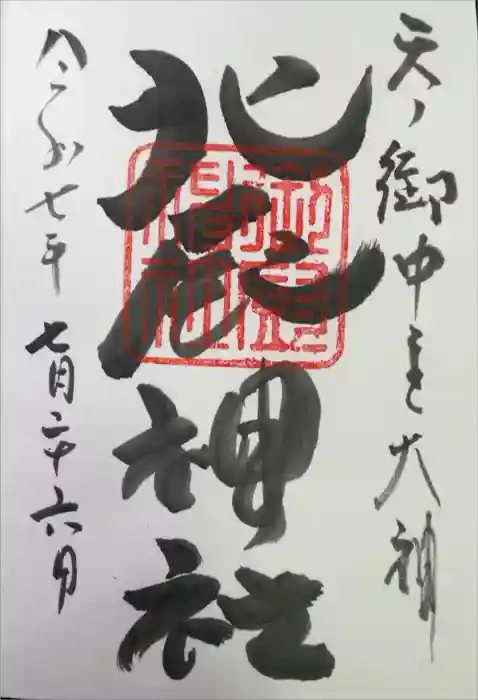 天ノ御中主大神
北辰神社
令和七年 七月二十六日